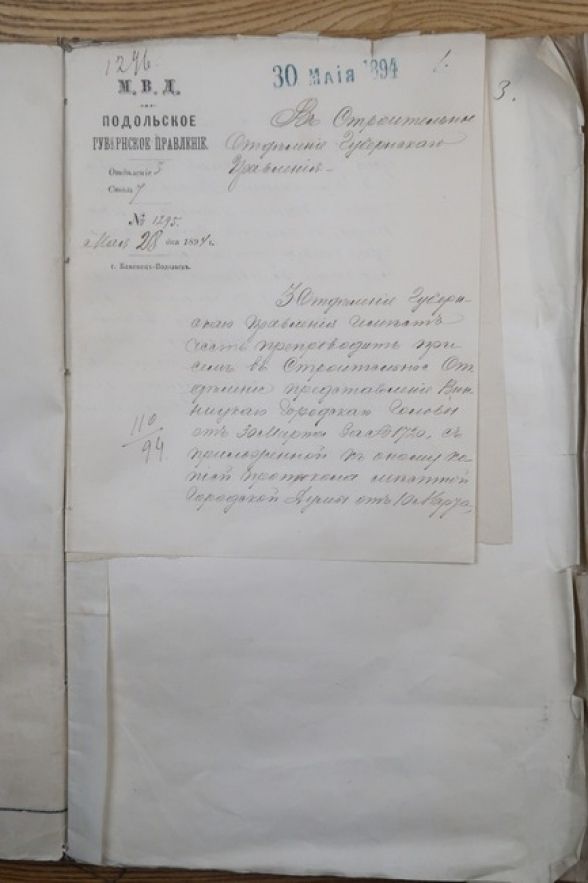 1296.
30 МАІЯ 1894
1.
3.
М. В. Д.
ПОДОЛЬСКОЕ
ГУБЕРНСКОЕ ПРАВЛЕНІЕ.
Отдѣленіе 3
Столъ 7
№ 1295.
Мая 28 дня 1894 г.
г. Каменецъ-Подольскъ.
Въ Строительное
Отдѣленіе Губернскаго
Правленія.
3 Отдѣленіе Губерн-
скаго Правленія имѣетъ
честь препроводить при
семъ въ Строительное От
дѣленіе представленіе Вин
ницкаго Городскаго Головы
отъ 30 Марта за № 1720, съ
приложенной къ оному ко
піей протокола мѣстной
Городской Думы отъ 10 Марта,
110
94